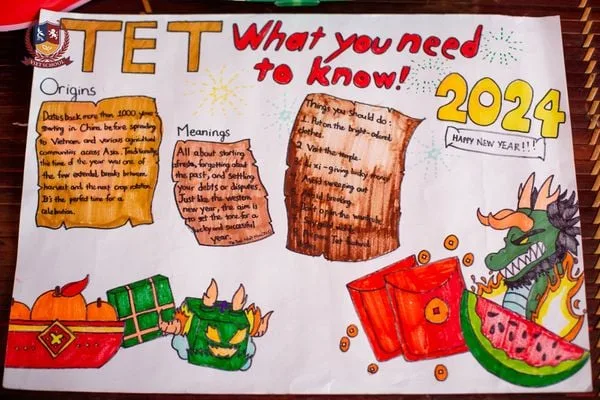 TET What you need
to know!
2024
HAPPY NEW YEAR!!!
Origins
Dates back more than 1000 years
starting in China before spreading
to Vietnam and various agricultural
communities across Asia. Traditionally,
the time of the year was one of
the few extended breaks between
harvest and the next crop rotation.
It's the perfect time for a
celebration.
Meanings
All about starting
afresh, forgetting about
the past, and settling
your debts or disputes.
Just like the western
new year, the aim is
to set the tone for a
lucky and successful
year.
Things you should do:
1. Put on the bright-colored
clothes.
2. Visit the temple.
li xi - giving lucky money
Avoid sweeping and